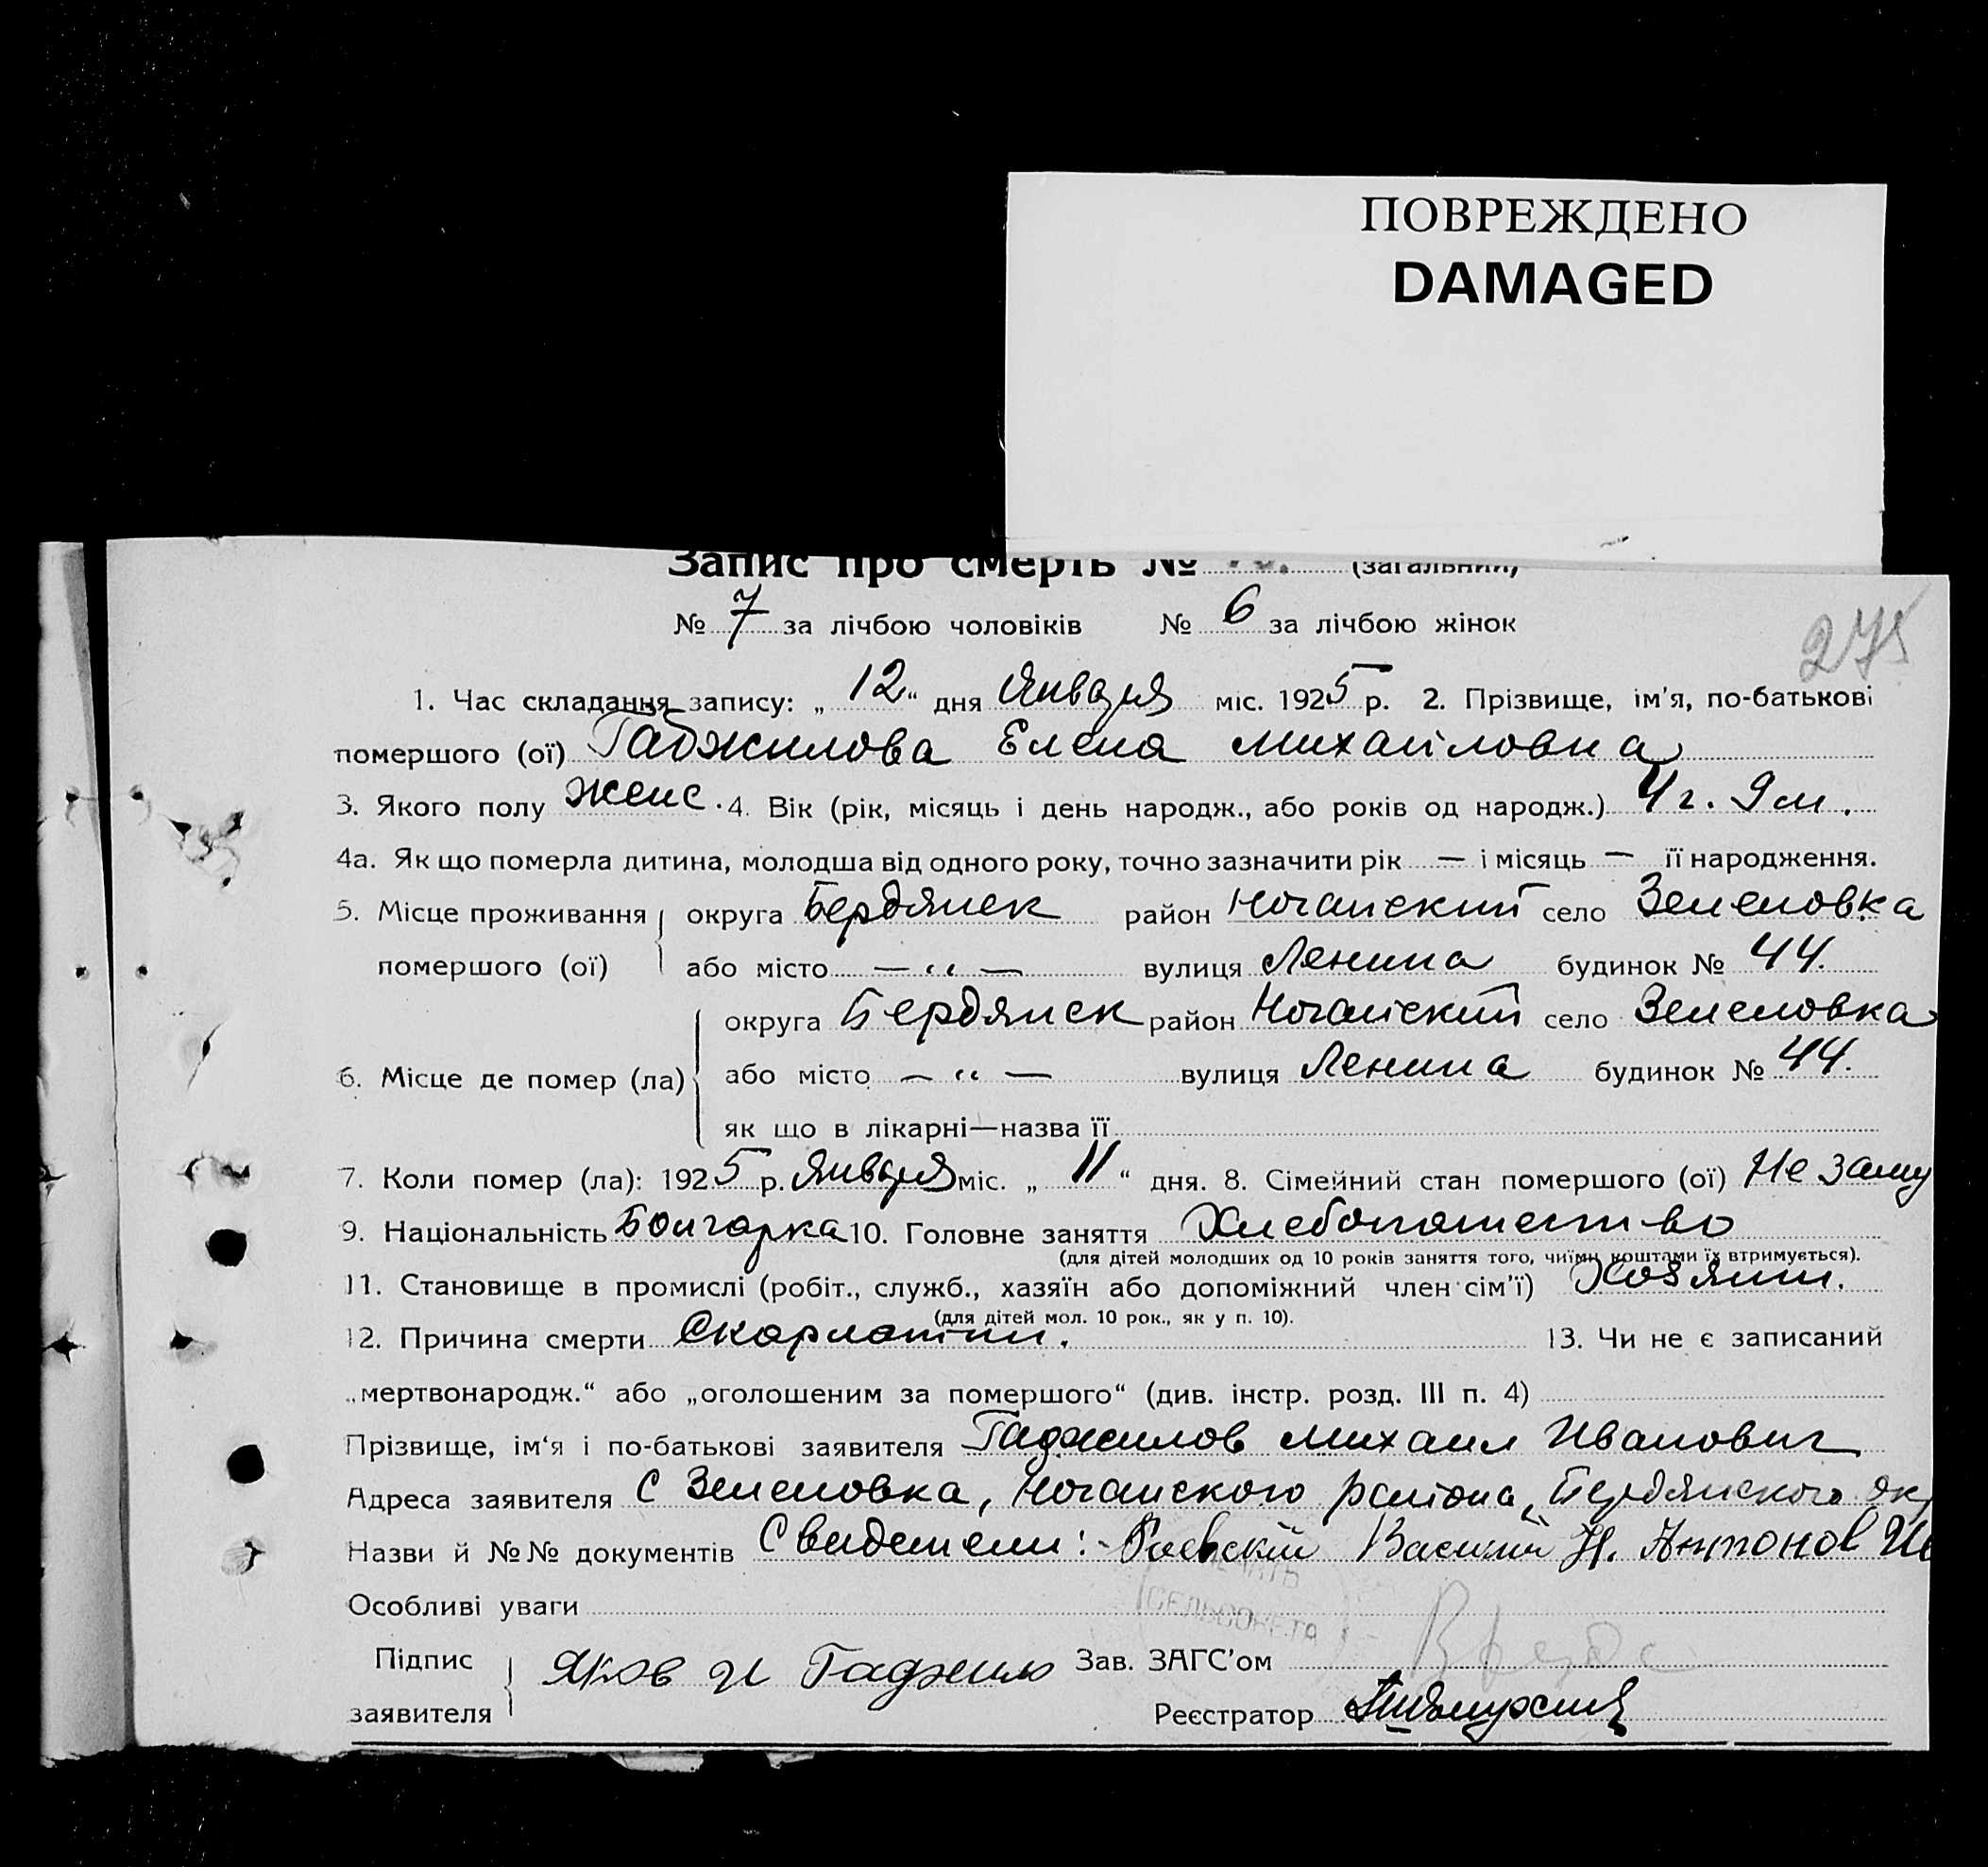 ПОВРЕЖДЕНО
DAMAGED
Запис про смерть № (загальний)
№ 7 за лічбою чоловіків № 6 за лічбою жінок
275
1. Час складання запису: „ 12 “ дня Января міс. 1925 р. 2. Прізвище, ім'я, по-батькові
померщого (ої) Гаджилова Елена Михайловна
3. Якого полу женс. 4. Вік (рік, місяць і день народж., або років од народж.) 4 г. 9 м.
4а. Як що померла дитина, молодша від одного року, точно зазначити рік — і місяць — її народження.
5. Місце проживання округа Бердянск район Ногайский село Зеленовка
помершого (ої) або місто — „ — вулиця Ленина будинок № 44.
округа Бердянск район Ногайский село Зеленовка
6. Місце де помер (ла) або місто — „ — вулиця Ленина будинок № 44.
як що в лікарні—назва її
7. Коли помер (ла): 1925 р. Января міс. „ 11 “ дня. 8. Сімейний стан помершого (ої) Не заму
9. Національність Болгарка 10. Головне заняття Хлебопашество
(для дітей молодших од 10 років заняття того, чиїми коштами їх втримується).
11. Становище в промислі (робіт., служб., хазяїн або допоміжний член сім'ї) Хозяин.
(для дітей мол. 10 рок., як у п. 10).
12. Причина смерти Скарлатин. 13. Чи не є записаний
„мертвонародж.“ або „оголошеним за помершого“ (див. інстр. розд. III п. 4)
Прізвище, ім'я і по-батькові заявителя Гаджилов Михаил Иванович
Адреса заявителя С Зеленовка, Ногайского района, Бердянского ок
Назви й №№ документів Свидетели:- Раевский Василий Н. Антонов Ив
СЕЛЬСОВЕТА
Особливі уваги
Підпис Яков И Гаджило Зав. ЗАГС'ом
заявителя Реєстратор